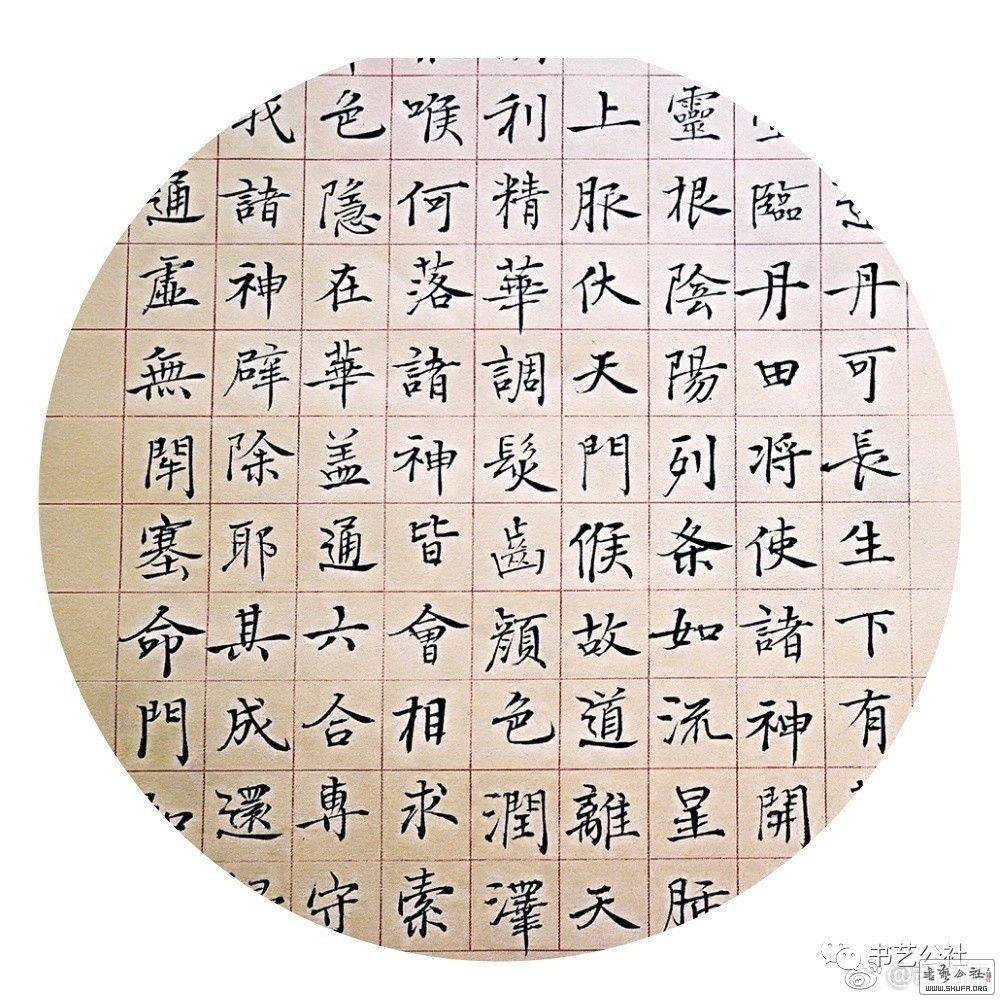 丹可長生下有
臨丹田将使諸神開
靈根陰陽列条如流星
上服伏天門候故道離天
利精華調髮齒顏色潤澤
喉何落諸神皆會相求索
色隱在華盖通六合專守
我諸神辟除耶其成還
通虛無閇塞命門
书艺公社
书艺公社
WWW.SHUFA.ORG